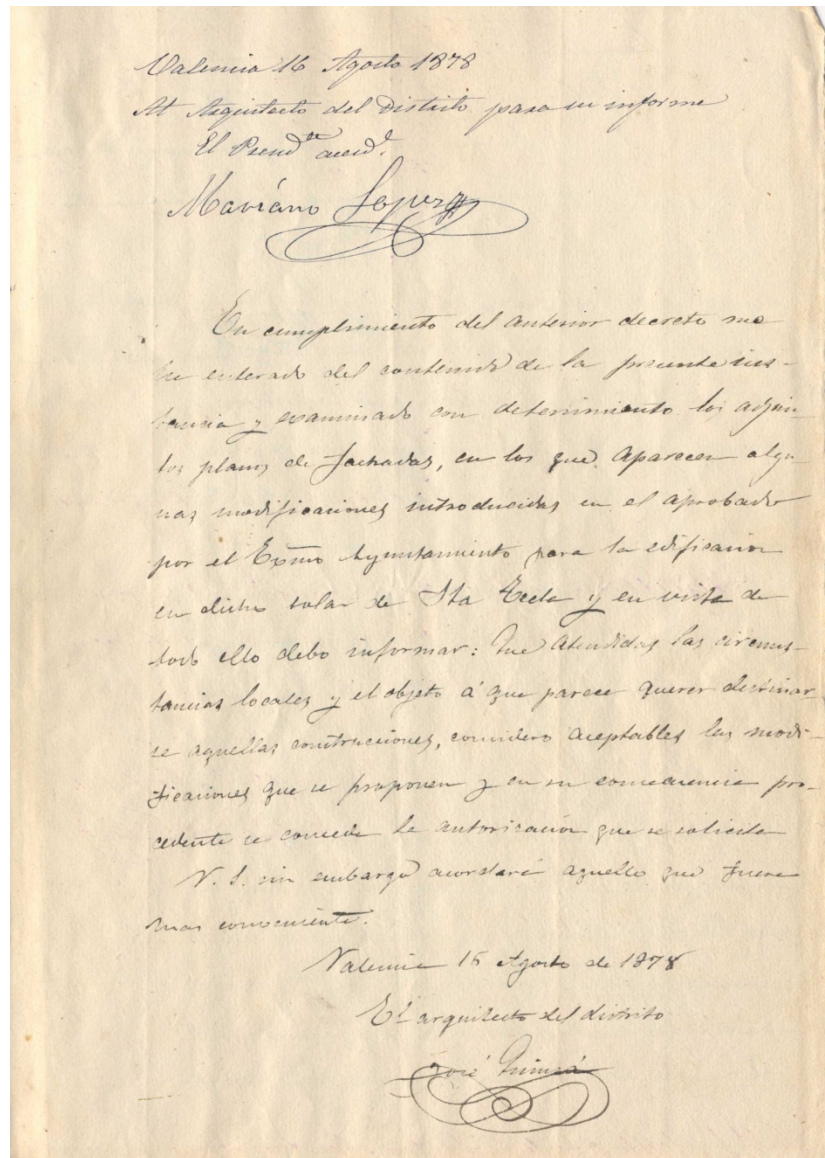 Valencia 16 Agosto 1878
Al Arquitecto del Distrito para su informe
El Presid.te accid.l
Mariano Lopez
En cumplimiento del anterior decreto me
he enterado del contenido de la presente ins-
tancia y examinado con detenimiento los adjun
tos planos de fachadas, en los que aparecen algu
nas modificaciones introducidas en el aprobado
por el Exmo Ayuntamiento para la edificacion
en dicho solar de Sta Tecla y en vista de
todo ello debo informar: Que atendidas las circuns-
tancias locales y el objeto á que parece querer destinar-
se aquellas construcciones, considero aceptables las modi-
ficaciones que se proponen y en su consecuencia pro-
cedente se conceda la autorización que se solicita
V. S. sin embargo acordará aquello que fuere
mas conveniente.
Valencia 16 Agosto de 1878
El arquitecto del distrito
José